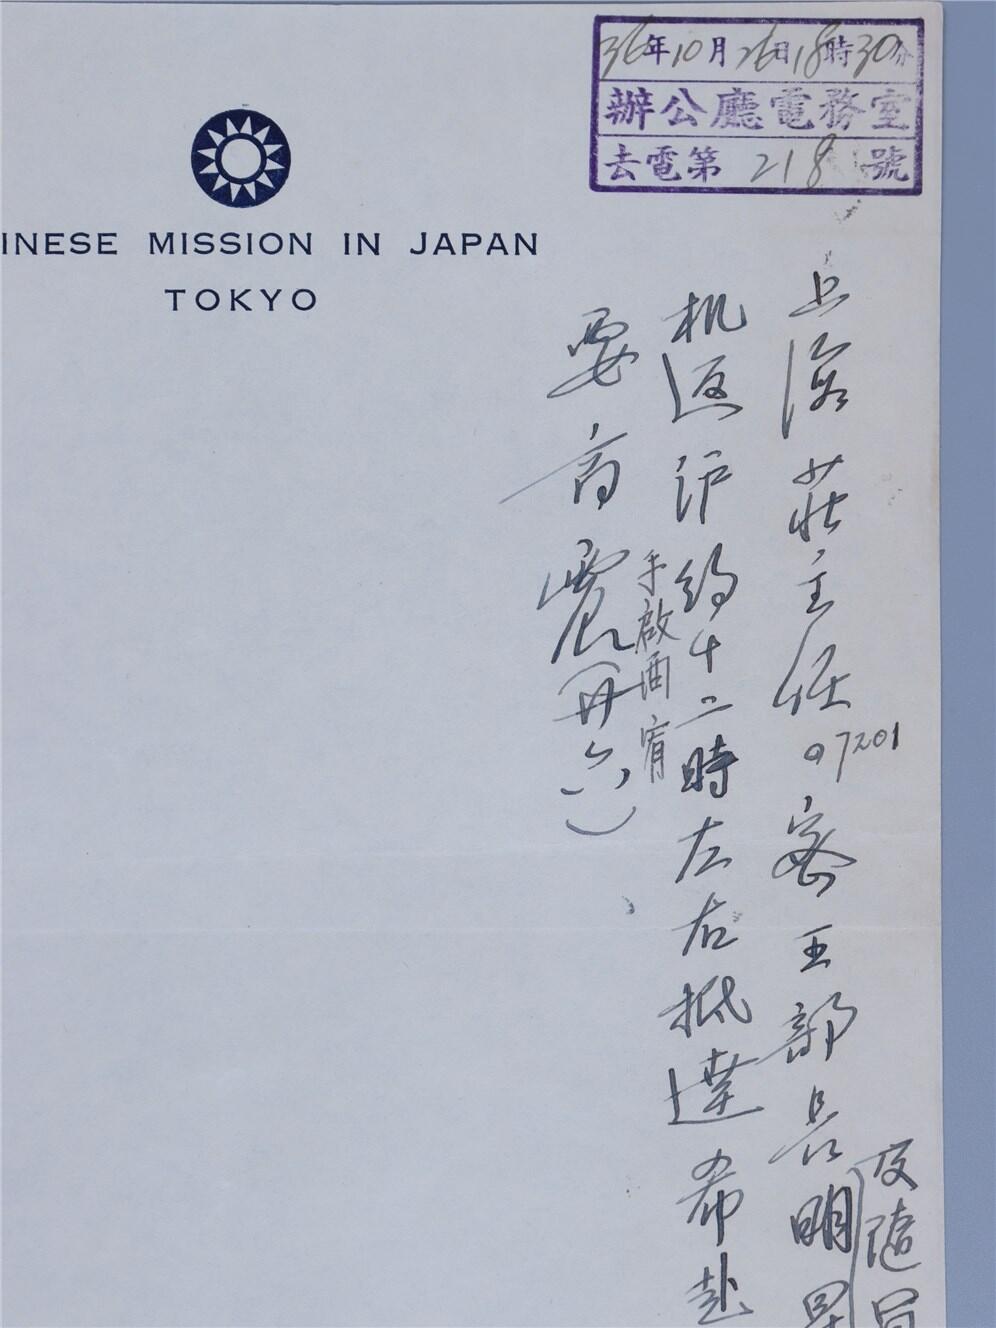 36年10月26日18時30分
辦公廳電務室
去電第218號
INESE MISSION IN JAPAN
TOKYO
上海莊主任07201密王部長明晨
及隨員
机返沪約十二時左右抵達希赴
手啟酉宥
要商震